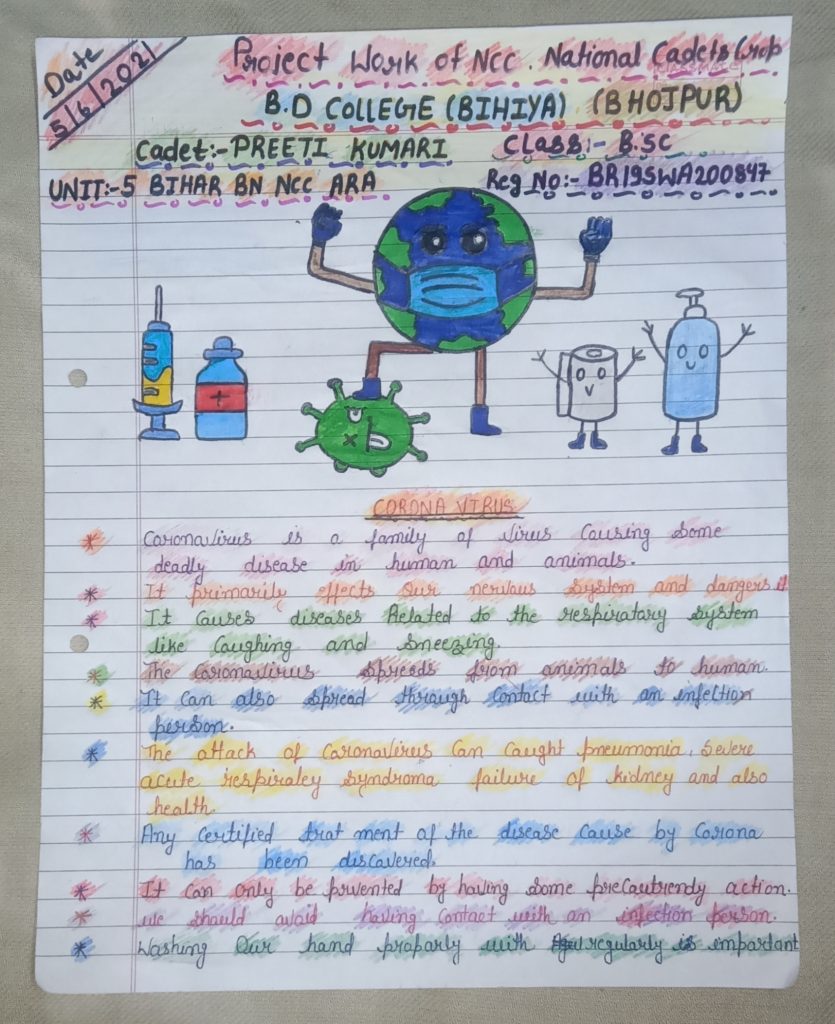 Date
5/6/2021
Project Work of NCC. National Cadets Crop
B.D COLLEGE (BIHIYA) (BHOJPUR)
Cadet:- PREETI KUMARI Class:- B.SC
UNIT:-5 BIHAR BN NCC ARA Reg No:- BR19SWA200847
CORONA VIRUS
* CoronaVirus is a family of Virus Causing Some
deadly disease in human and animals.
* It primarily effects our nervous system and dangers it
* It Causes diseases Related to the respiratary system
like Caughing and Sneezing
* The CoronaVirus Spreads from animals to human.
* It Can also Spread through Contact with an infection
person.
* The attack of CoronaVirus Can Caught pneumonia, Severe
acute respiraley Syndroma failure of kidney and also
health.
* Any Certified trat ment of the disease Cause by Corona
has been discavered.
* It Can Only be prvented by having Some precautrendy action.
* we should avaid having Contact with an infection person.
* Washing Our hand praparly with regularly is impartant